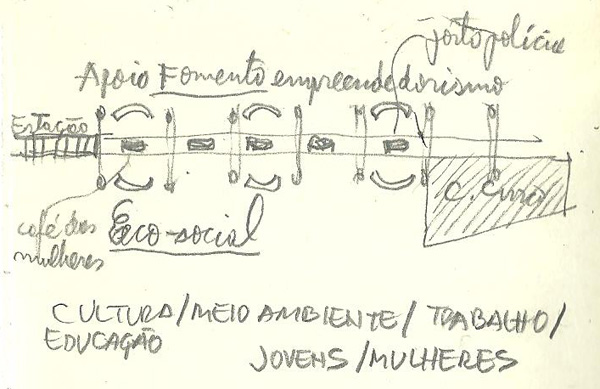 pôsto policial
Apoio Fomento empreendedorismo
Estação
C. Cívico
café das
mulheres
Eco-social
CULTURA/MEIO AMBIENTE/ TRABALHO/
EDUCAÇÃO
JOVENS/MULHERES